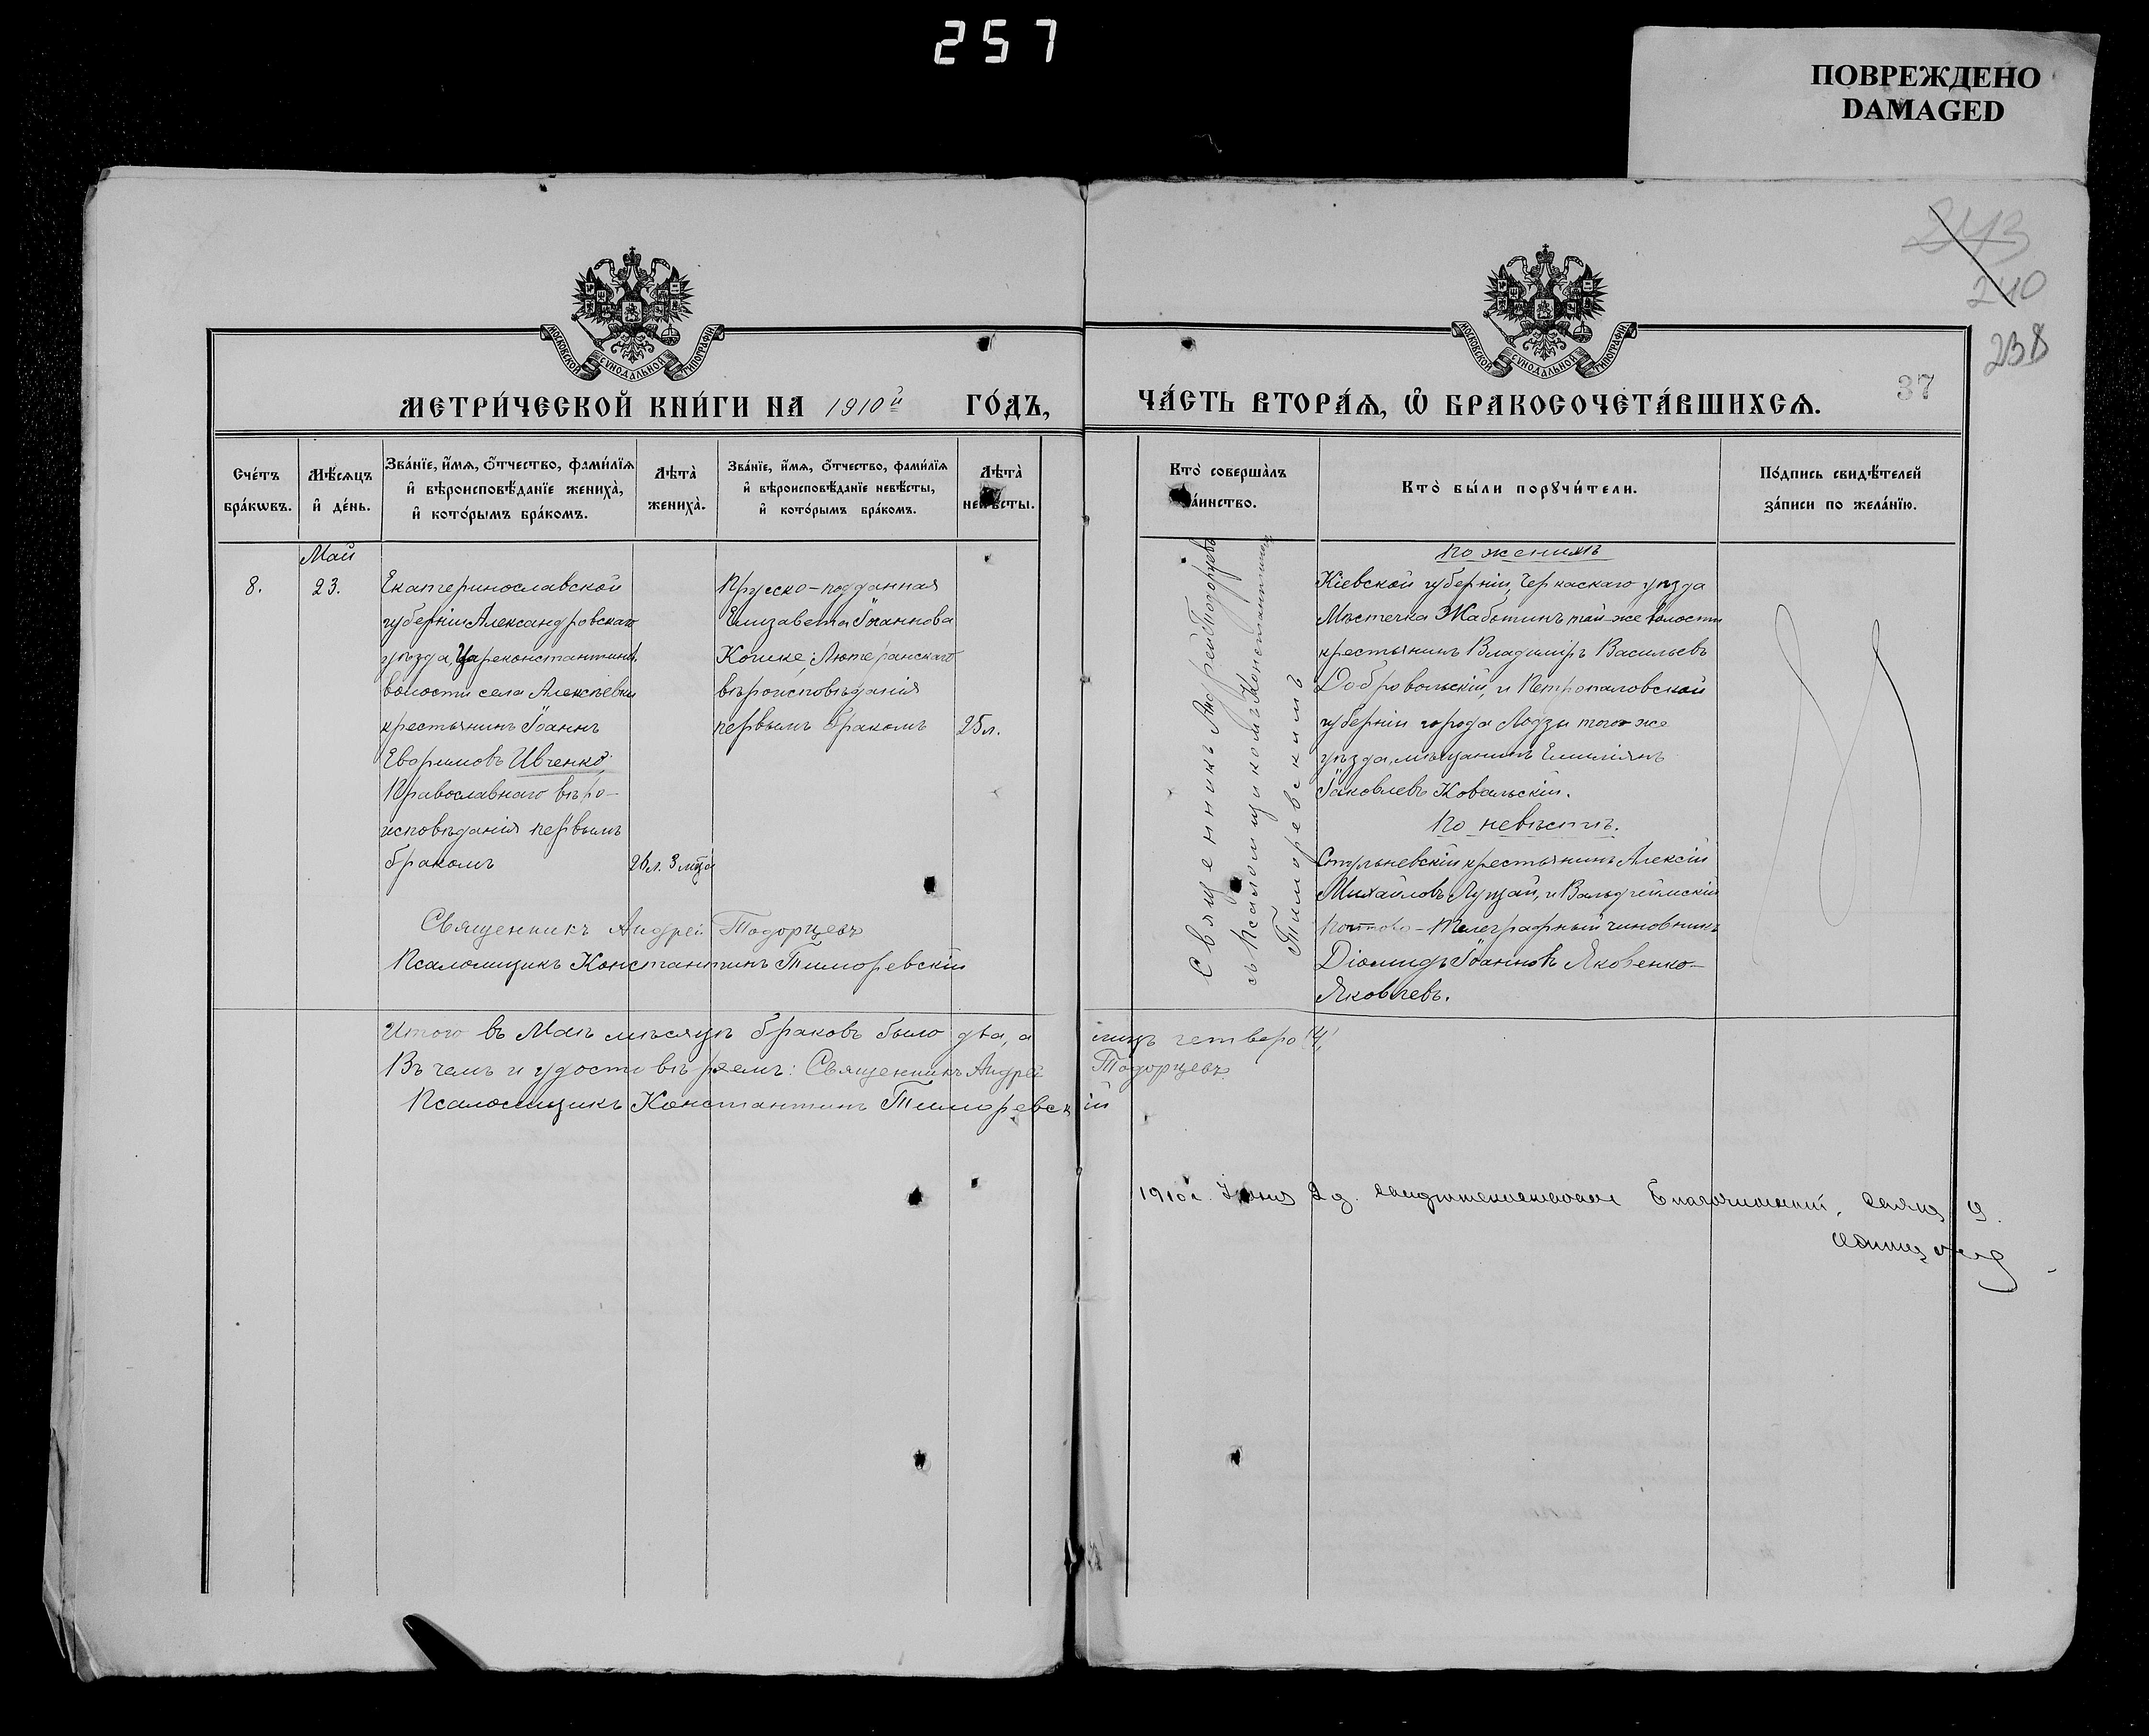 257
ПОВРЕЖДЕНО
DAMAGED
243
240
238
37
МОСКОВСКОЙ СѴНОДАЛЬНОЙ ТИПОГРАФІИ
МОСКОВСКОЙ СѴНОДАЛЬНОЙ ТИПОГРАФІИ
МЕТРИ́ЧЕСКОЙ КНИ́ГИ НА 1910й ГО́ДЪ,
ЧА́СТЬ ВТОРА́Ѧ, Ѡ҆ БРАКОСОЧЕТА́ВШИХСѦ.
Сче́тъ
бра́кѡвъ.
Мѣ́сѧцъ
и҆ де́нь.
Зва́нїе, и҆́мѧ, ѻ҆́тчество, фами́лїѧ
и҆ вѣроисповѣ́данїе жениха̀,
и҆ кото́рымъ бра́комъ.
Лѣта̀
жениха̀.
Зва́нїе, и҆́мѧ, ѻ҆́тчество, фами́лїѧ
и҆ вѣроисповѣ́данїе невѣ́сты,
и҆ кото́рымъ бра́комъ.
Лѣта̀
невѣ́сты.
Кто̀ соверша̀лъ
та́инство.
Кто̀ бы́ли порꙋчи́тели.
По́дпись свидѣ́телей
за́писи по жела́нїю.
Май
8.
23.
Екатеринославской
губерніи Александровскаго
уѣзда, Цареконстантин.
волости села Алексѣевки
крестьянинъ Іоаннъ
Ивченко,
Православнаго вѣро-
исповѣданія первымъ
бракомъ
26 л. 3 мѣ
Прусско-подданная
Елизавета Іоаннова
Лютеранскаго
вѣроисповѣданія
первымъ бракомъ
25 л.
Священникъ Андрей Тодорцевъ
съ Псаломщикомъ Константиномъ
Тиморевскимъ
По женихѣ
Кіевской губерніи, Черкаскаго уѣзда
Мѣстечка Жаботинъ той-же волости
крестьянинъ Владиміръ Васильевъ
Добровольскій, и Петропаловской
губерніи города Лодзи того же
уѣзда, мѣщанинъ Емиліянъ
Іаковлевъ Ковальскій.
По невѣстѣ.
крестьянинъ Алексій
Михайловъ Лущай, и Вальдгеймскій
Почтово-Телеграфный чиновникъ
Діомидъ Іоанновъ Яковенко-
Яковлевъ.
Священникъ Андрей Тодорцевъ
Псаломщикъ Константинъ Тиморевскій
Итого въ Маѣ мѣсяцѣ браковъ было два, а лицъ четверо /4/
Въ чемъ и удостовѣряемъ: Священникъ Андрей Тодорцевъ
Псаломщикъ Константинъ Тиморевскій
1910 г. Іюня 2 д. Благочинный,